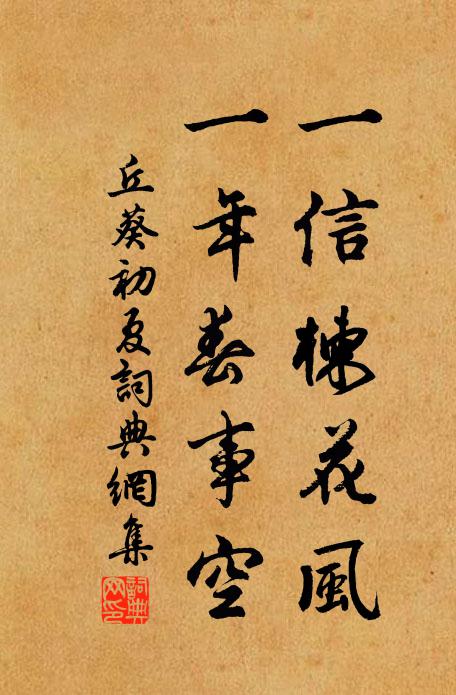 一信楝花風
一年春事空
丘葵初夏詞典網集
詞典
网印